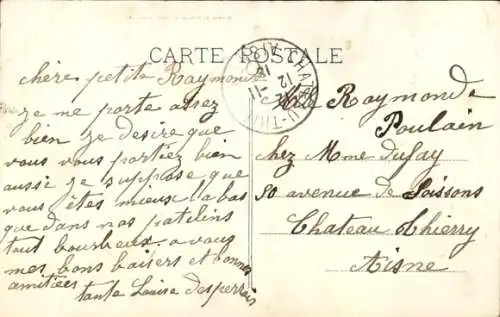 CARTE POSTALE
chère petite Raymonde
je me porte assez
bien je desire que
vous vous portiez bien
aussi je suppose que
vous êtes mieux labas
que dans nos patelins
tout bourbeux a vous
mes bons baisers et bonnes
amitiées
tante Louise Desperrais
Mlle Raymonde
Poulain
chez Mme Dufay
50 avenue de Soissons
Chateau Thierry
Aisne